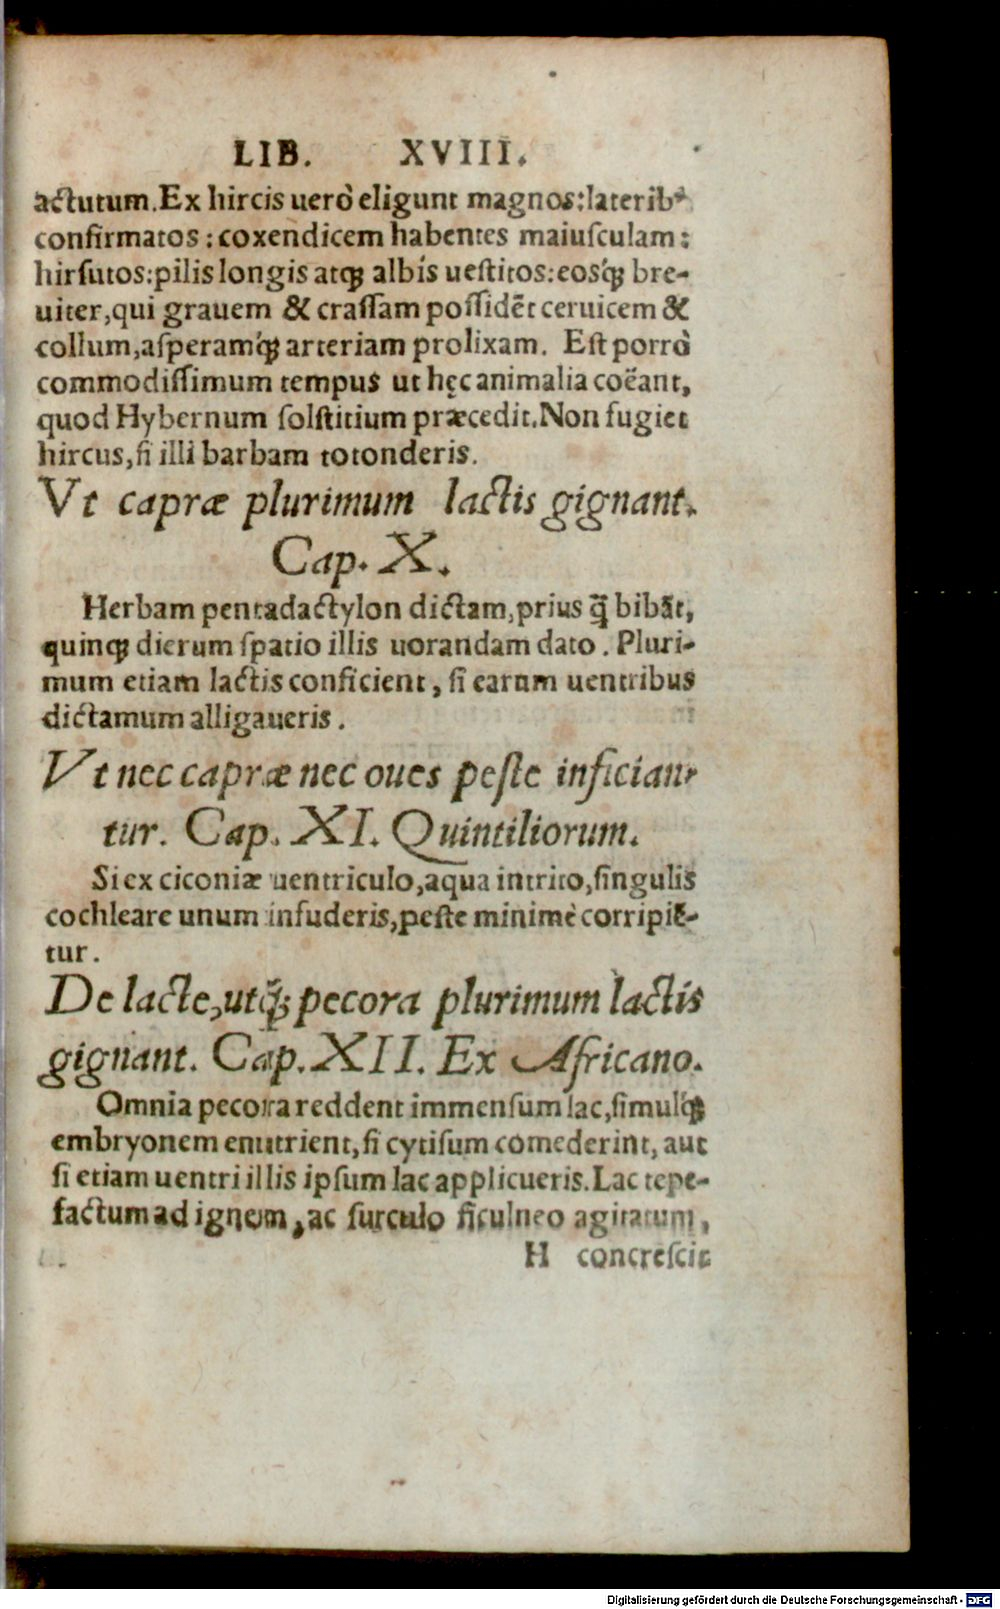 LIB. XVIII.
actutum. Ex hircis uerò eligunt magnos: laterib⁹
confirmatos: coxendicem habentes maiuſculam:
hirſutos: pilis longis atqꝫ albis ueſtitos: eosq́ꝫ bre-
uiter, qui grauem & craſſam poſſidēt ceruicem &
collum, aſperamq́ꝫ arteriam prolixam. Eſt porrò
commodiſſimum tempus ut hęc animalia coëant,
quod Hybernum ſolſtitium præcedit. Non fugiet
hircus, ſi illi barbam totonderis.
Vt capræ plurimum lactis gignant.
Cap. X.
Herbam pentadactylon dictam, prius q̄ bibāt,
quinqꝫ dierum ſpatio illis uorandam dato. Pluri-
mum etiam lactis conficient, ſi earum uentribus
dictamum alligaueris.
Vt nec capræ nec oues peſte infician-
tur. Cap. XI. Quintiliorum.
Si ex ciconiæ uentriculo, aqua intrito, ſingulis
cochleare unum infuderis, peſte minimè corripiē-
tur.
De lacte, utq́ꝫ pecora plurimum lactis
gignant. Cap. XII. Ex Africano.
Omnia pecora reddent immenſum lac, ſimulq́ꝫ
embryonem enutrient, ſi cytiſum comederint, aut
ſi etiam uentri illis ipſum lac applicueris. Lac tepe-
factum ad ignem, ac ſurculo ficulneo agitatum,
H concreſcit
Digitalisierung gefördert durch die Deutsche Forschungsgemeinschaft - DFG